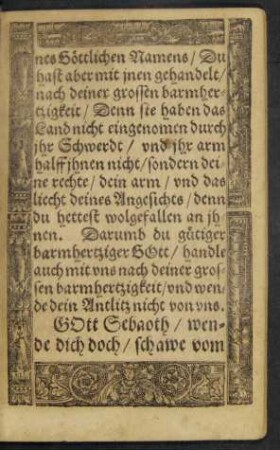 nes Göttlichen Namens / Du
hast aber mit jnen gehandelt /
nach deiner grossen barmher-
tzigkeit / Denn sie haben das
Land nicht eingenomen durch
jhr Schwerdt / vnd jhr arm
halff jhnen nicht / sondern dei-
ne rechte / dein arm / vnd das
liecht deines Angesichts / denn
du hettest wolgefallen an jh
nen. Darumb du gütiger
barmhertziger GOtt / handle
auch mit vns nach deiner gros-
sen barmhertzigkeit / vnd wen-
de dein Antlitz nicht von vns.
GOtt Sebaoth / wen-
de dich doch / schawe vom